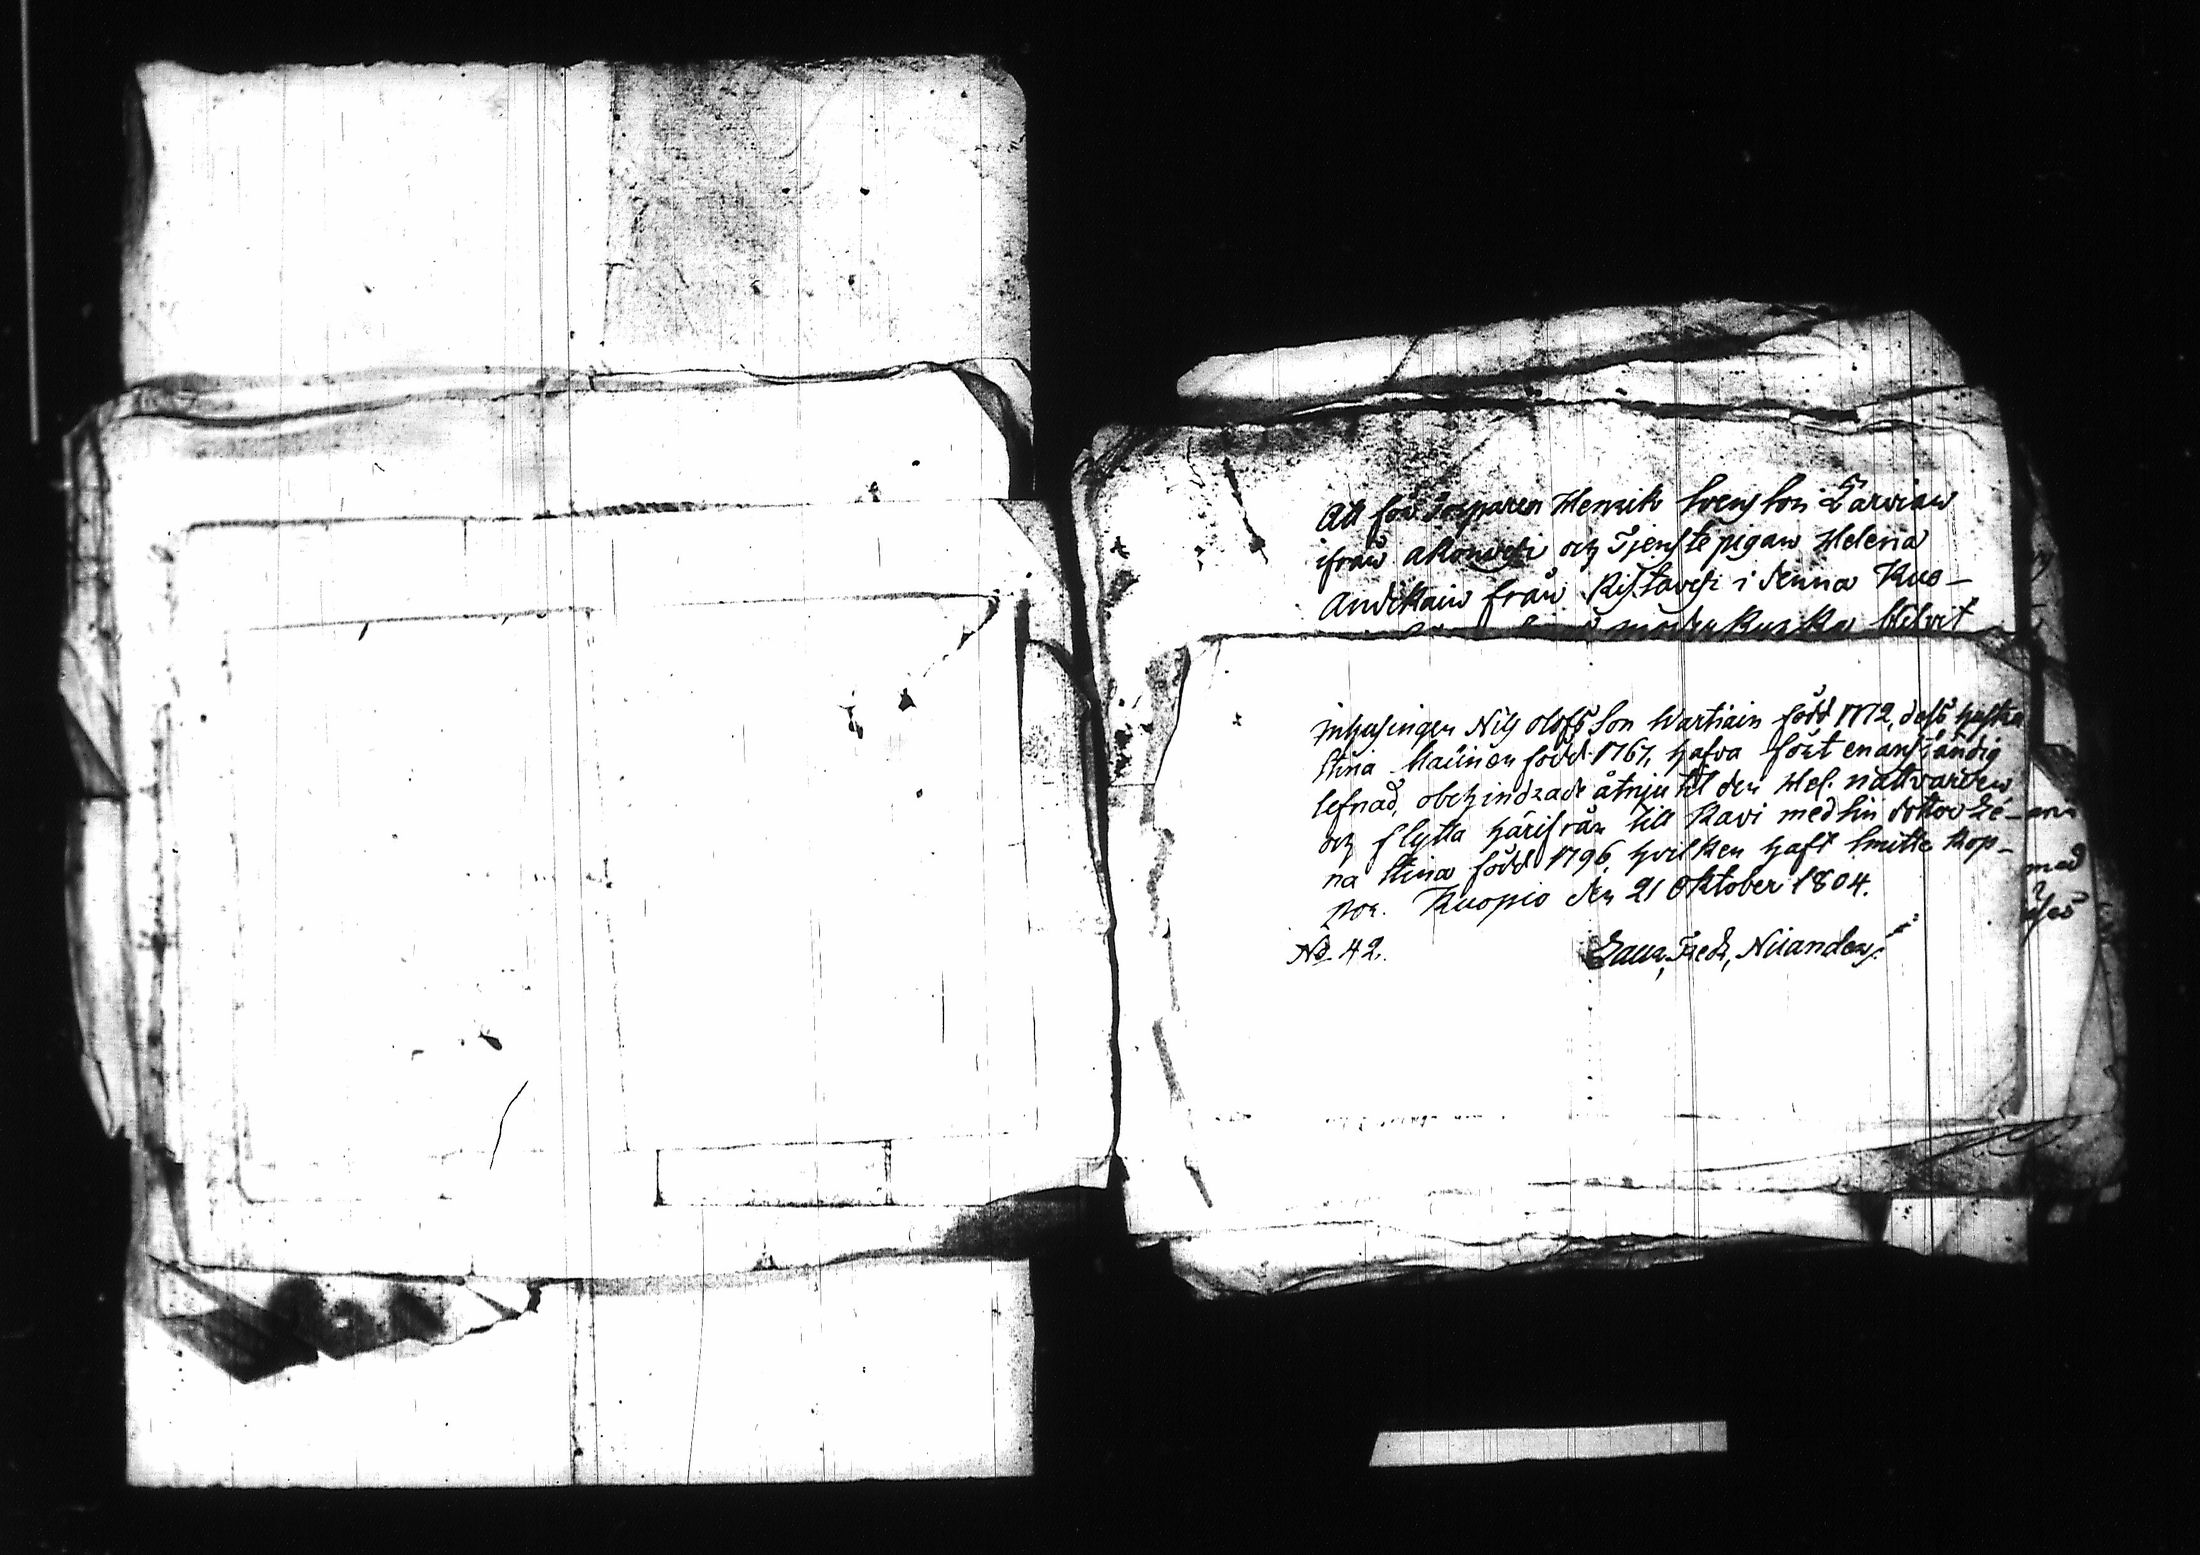 Att för Torparen Henrik Svensson Larvian
ifrån Akonvesi och Tjenstepigan Helena
Andikain från Ristavesi i denna Kuo-
blifvit
Inhysingen Nils Olofsson Wartiain född 1772, dess hustru
Stina Maüinen född 1767, hafva fört en anständig
lefnad, obehindrade åtnjutit den Hel. nattvarden
och flytta härifrån till Kavi med sin dotter Le-
na Stina född 1796, hvilken haft smitte kop-
por. Kuopio den 21 Oktober 1804.
No. 42. Laur, Fredr, Niiander
med